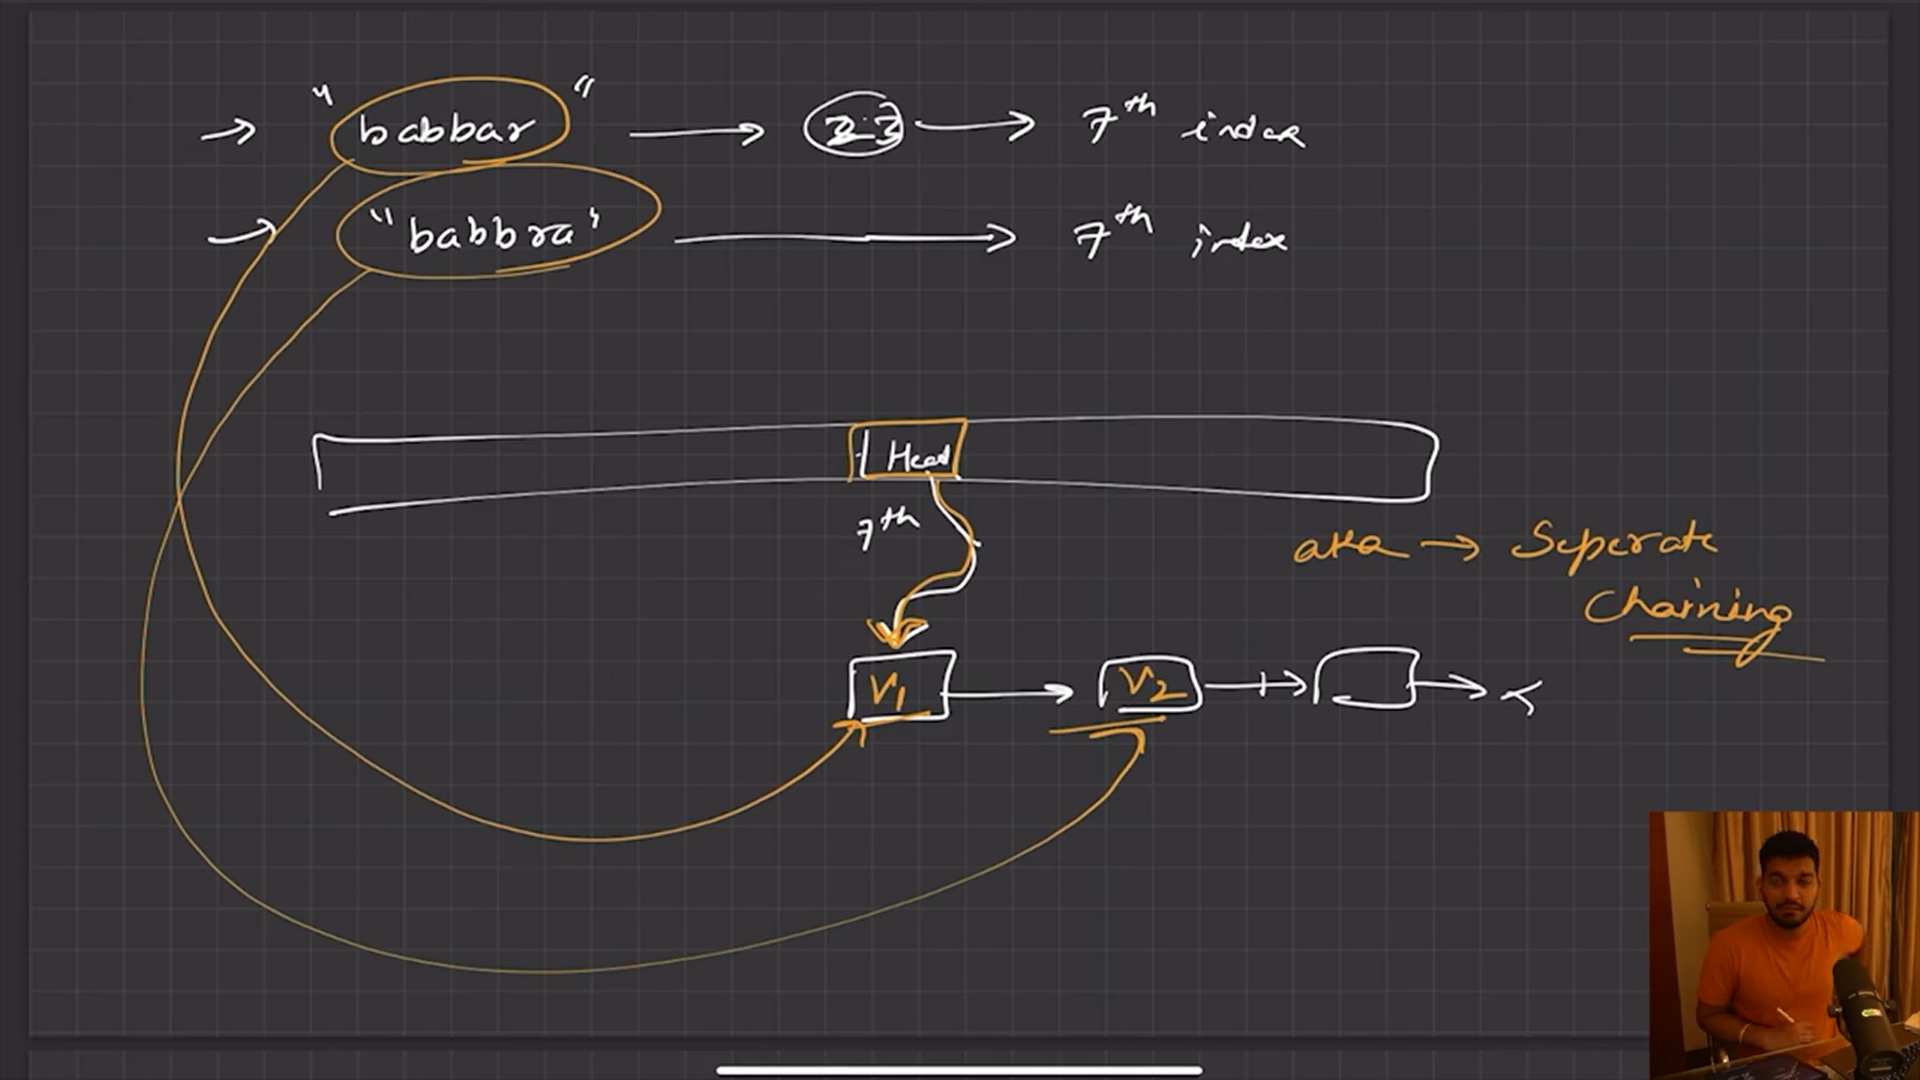 → "babbar" → → 7th index
→ "babbra" → 7th index
Head
7th
aka → Seperate
Chaining
V1 → V2 → →